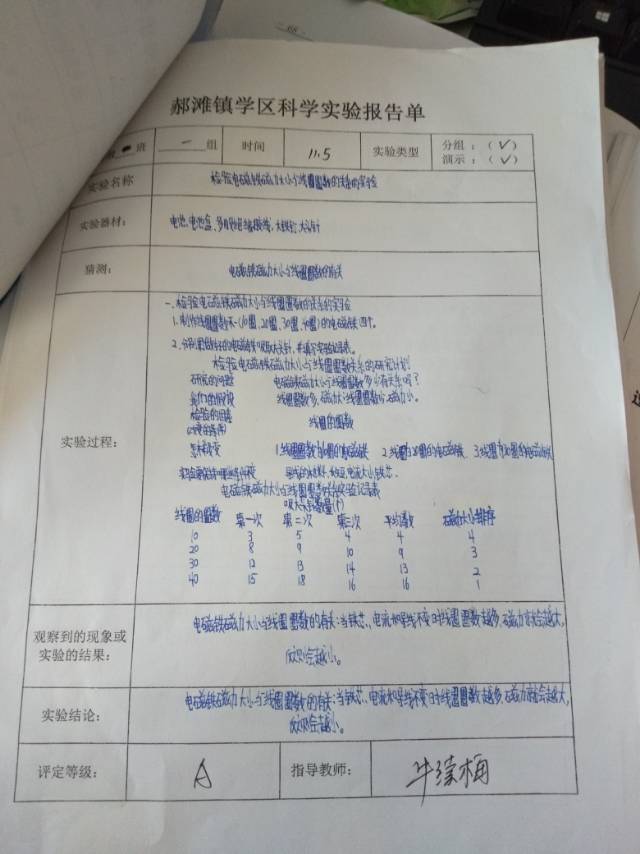 郝滩镇学区科学实验报告单
班 一 组 时间 11.5 实验类型 分组：（✓）
演示：（✓）
实验名称 检验电磁铁磁力大小与线圈圈数的关系的实验
实验器材： 电池、电池盒、多 大铁钉、大头针
猜测： 电磁铁磁力大小与线圈圈数的有关
实验过程：
一、检验电磁铁磁力大小与线圈圈数的关系的实验
1. 制作线圈圈数不一（10圈、20圈、30圈、40圈）的电磁铁四个。
2. 分别 的电磁铁吸取大头针，并填写实验记录表。
检验电磁铁磁力大小与线圈圈数关系的研究计划
研究的问题 电磁铁磁力大小与线圈圈数多少有关系吗？
我们的假设 线圈圈数多，磁力大；线圈圈数少，磁力小。
检验的因素 线圈的圈数
怎样改变 1.线圈 的电磁铁 2.线圈为20圈的电磁铁 3.线圈 的电磁铁
实验要保持哪些条件不变 电流大小、铁芯、
电磁铁磁力大小与线圈圈数 实验记录表
吸大头针数量(个)
线圈的圈数 第一次 第二次 第三次 平均个数 磁力大小排序
10 3 5 4 4 4
20 8 9 10 9 3
30 12 13 14 13 2
40 15 18 16 16 1
观察到的现象或
实验的结果：
电磁铁磁力大小与线圈圈数的有关：当铁芯、电流和导线不变时线圈圈数越多，磁力就会越大，
反之则会越小。
实验结论：
电磁铁磁力大小与线圈圈数的有关：当铁芯、电流和导线不变时线圈圈数越多，磁力就会越大，
反之则会越小。
评定等级： A 指导教师： 牛 梅